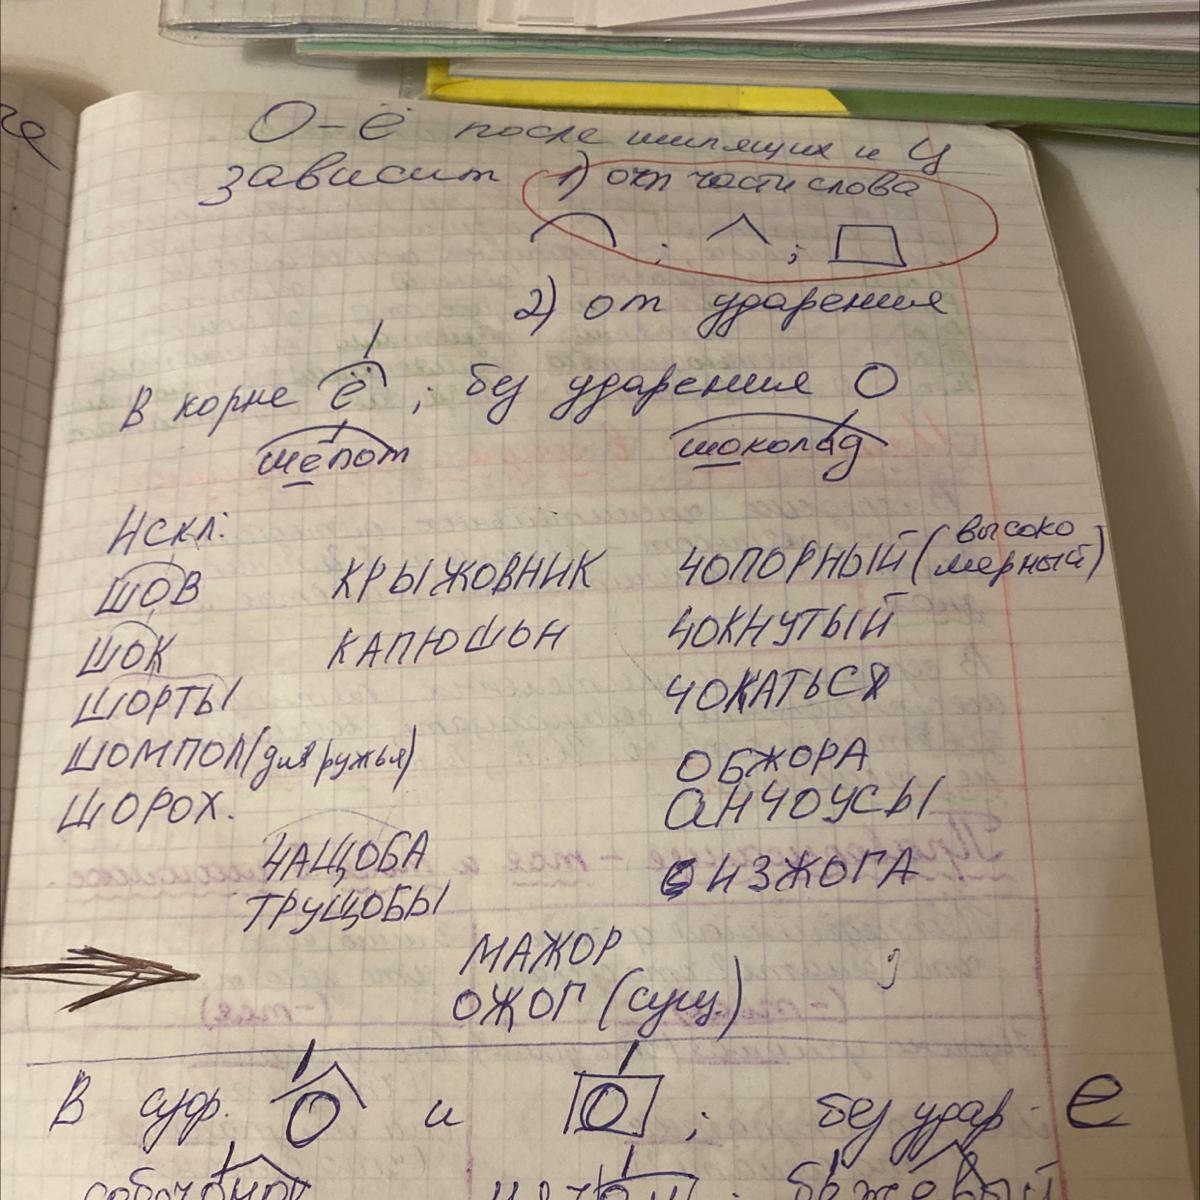 О-ё после шипящих и Ц
зависит 1) от части слова
; ;
2) от ударения
В корне ё ; без ударения О
шёпот шоколад
Искл:
ШОВ КРЫЖОВНИК ЧОПОРНЫЙ (высоко
мерный)
ШОК КАПЮШОН ЧОКНУТЫЙ
ШОРТЫ ЧОКАТЬСЯ
ШОМПОЛ (для ружья) ОБЖОРА
ШОРОХ. АНЧОУСЫ
ЧАЩОБА ИЗЖОГА
ТРУЩОБЫ
МАЖОР
ОЖОГ (сущ.)
В суф. О и О ; без удар. е
бежевый